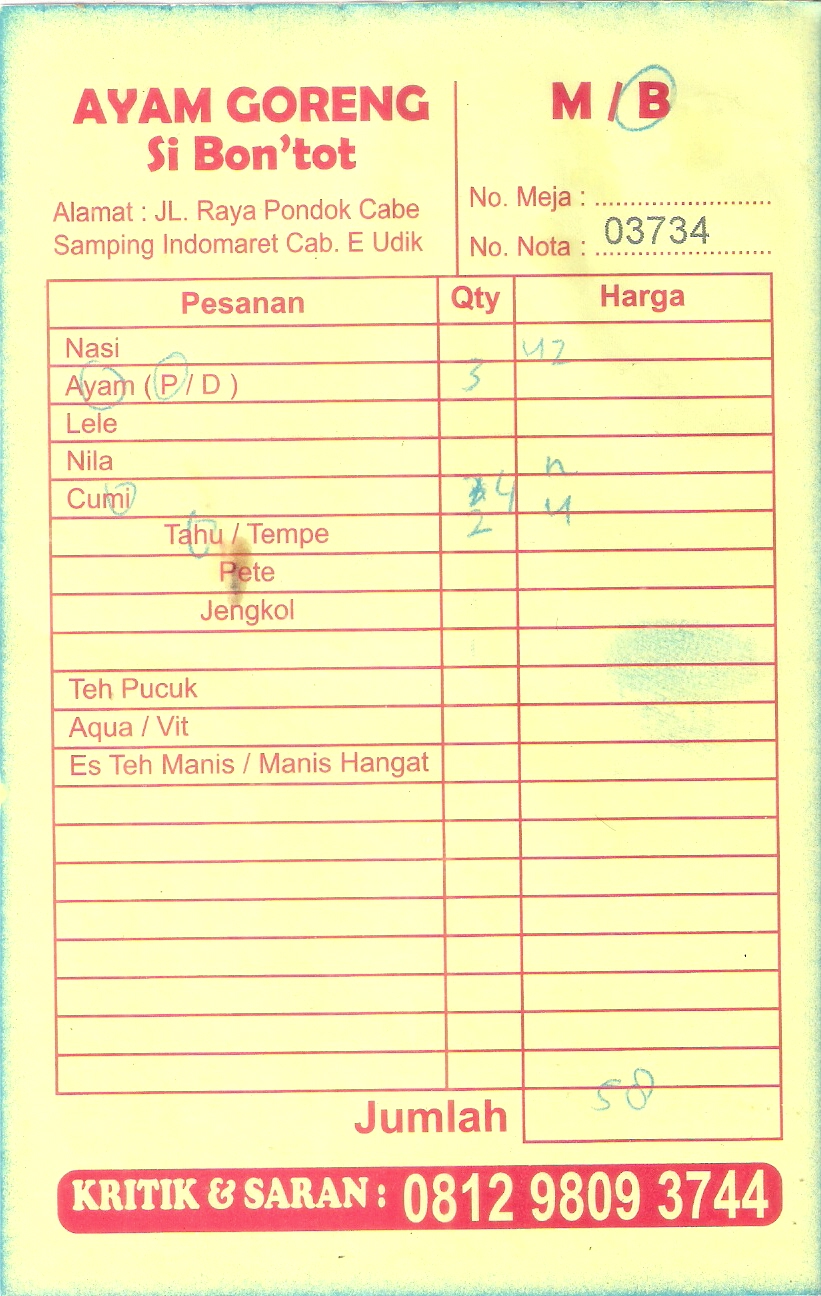 AYAM GORENG
Si Bon'tot
Alamat : JL. Raya Pondok Cabe
Samping Indomaret Cab. E Udik
M / B
No. Meja : ..........................
No. Nota : 03734
Pesanan Qty Harga
Nasi
Ayam ( P / D ) 3 42
Lele
Nila
Cumi 4
Tahu / Tempe 2 4
Pete
Jengkol
Teh Pucuk
Aqua / Vit
Es Teh Manis / Manis Hangat
Jumlah 58
KRITIK & SARAN : 0812 9809 3744